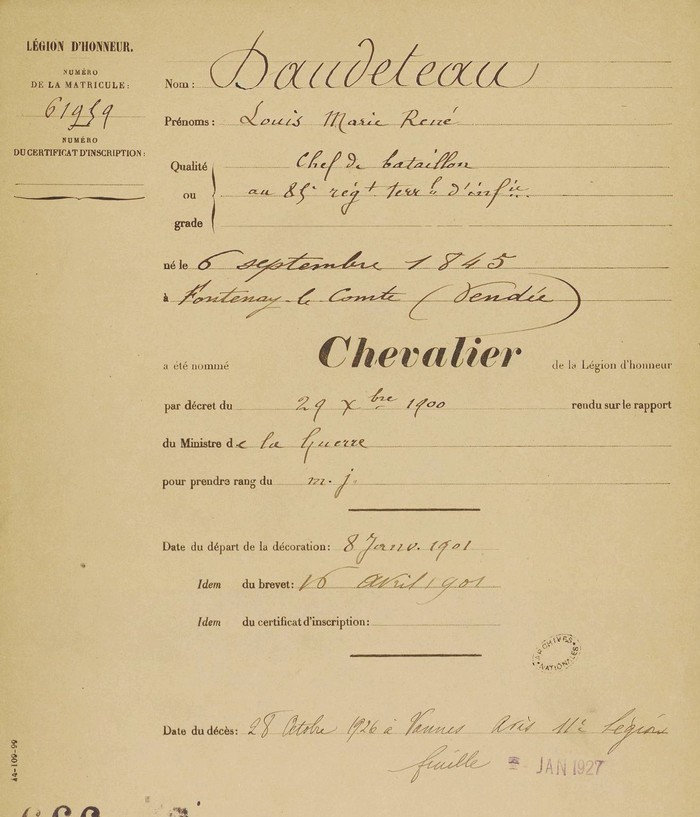 LÉGION D'HONNEUR.
NUMÉRO
DE LA MATRICULE:
61959
NUMÉRO
DU CERTIFICAT D'INSCRIPTION:
Nom: Daudeteau
Prénoms: Louis Marie René
Qualité ou grade
Chef de bataillon
au 85e régt terral d'infie
né le 6 septembre 1845
à Fontenay-le Comte (Vendée)
a été nommé Chevalier de la Légion d'honneur
par décret du 29 Xbre 1900 rendu sur le rapport
du Ministre de la Guerre
pour prendre rang du m. j.
Date du départ de la décoration: 8 Janv. 1901
Idem du brevet: 16 avril 1901
Idem du certificat d'inscription:
ARCHIVES NATIONALES
Date du décès: 28 Octobre 1926 à Vannes avis 11e Légion
feuille JAN 1927
44-109-99